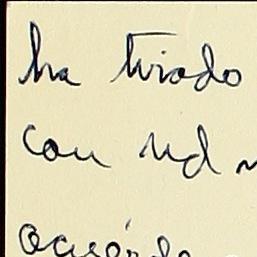 ha tirado
con Ud
acuérdo